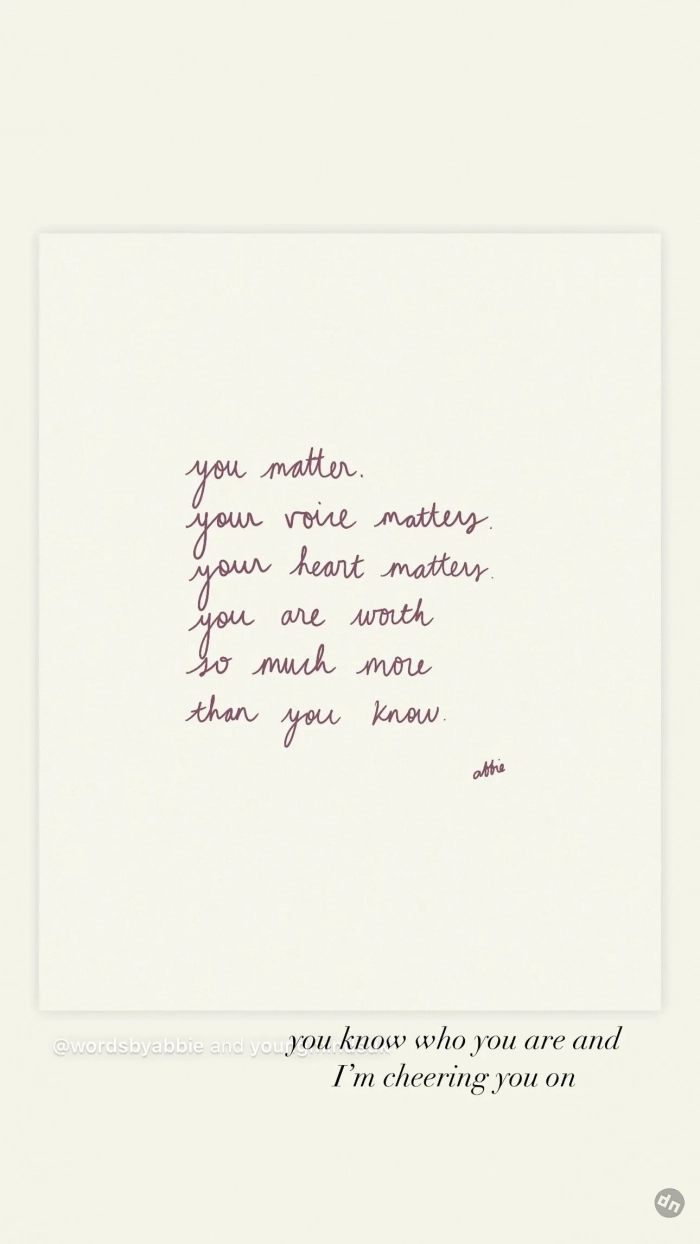 you matter.
your voice matters.
your heart matters.
you are worth
so much more
than you know.
abbie
@wordsbyabbie and
you know who you are and
I'm cheering you on
dn